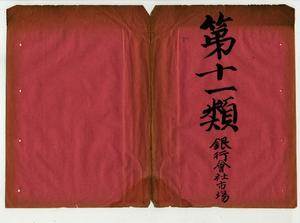 第十一類
銀行會社市場